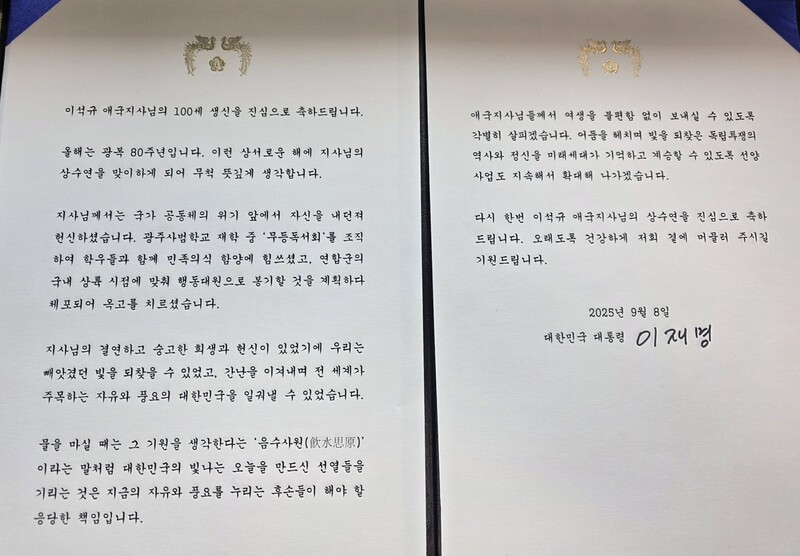 이석규 애국지사님의 100세 생신을 진심으로 축하드립니다.
올해는 광복 80주년입니다. 이런 상서로운 해에 지사님의
상수연을 맞이하게 되어 무척 뜻깊게 생각합니다.
지사님께서는 국가 공동체의 위기 앞에서 자신을 내던져
헌신하셨습니다. 광주사범학교 재학 중 ‘무등독서회’를 조직
하여 학우들과 함께 민족의식 함양에 힘쓰셨고, 연합군의
국내 상륙 시점에 맞춰 행동대원으로 봉기할 것을 계획하다
체포되어 옥고를 치르셨습니다.
지사님의 결연하고 숭고한 희생과 헌신이 있었기에 우리는
빼앗겼던 빛을 되찾을 수 있었고, 간난을 이겨내며 전 세계가
주목하는 자유와 풍요의 대한민국을 일궈낼 수 있었습니다.
물을 마실 때는 그 기원을 생각한다는 ‘음수사원(飮水思原)’
이라는 말처럼 대한민국의 빛나는 오늘을 만드신 선열들을
기리는 것은 지금의 자유와 풍요를 누리는 후손들이 해야 할
응당한 책임입니다.
애국지사님들께서 여생을 불편함 없이 보내실 수 있도록
각별히 살피겠습니다. 어둠을 헤치며 빛을 되찾은 독립투쟁의
역사와 정신을 미래세대가 기억하고 계승할 수 있도록 선양
사업도 지속해서 확대해 나가겠습니다.
다시 한번 이석규 애국지사님의 상수연을 진심으로 축하
드립니다. 오래도록 건강하게 저희 곁에 머물러 주시길
기원드립니다.
2025년 9월 8일
대한민국 대통령 이재명